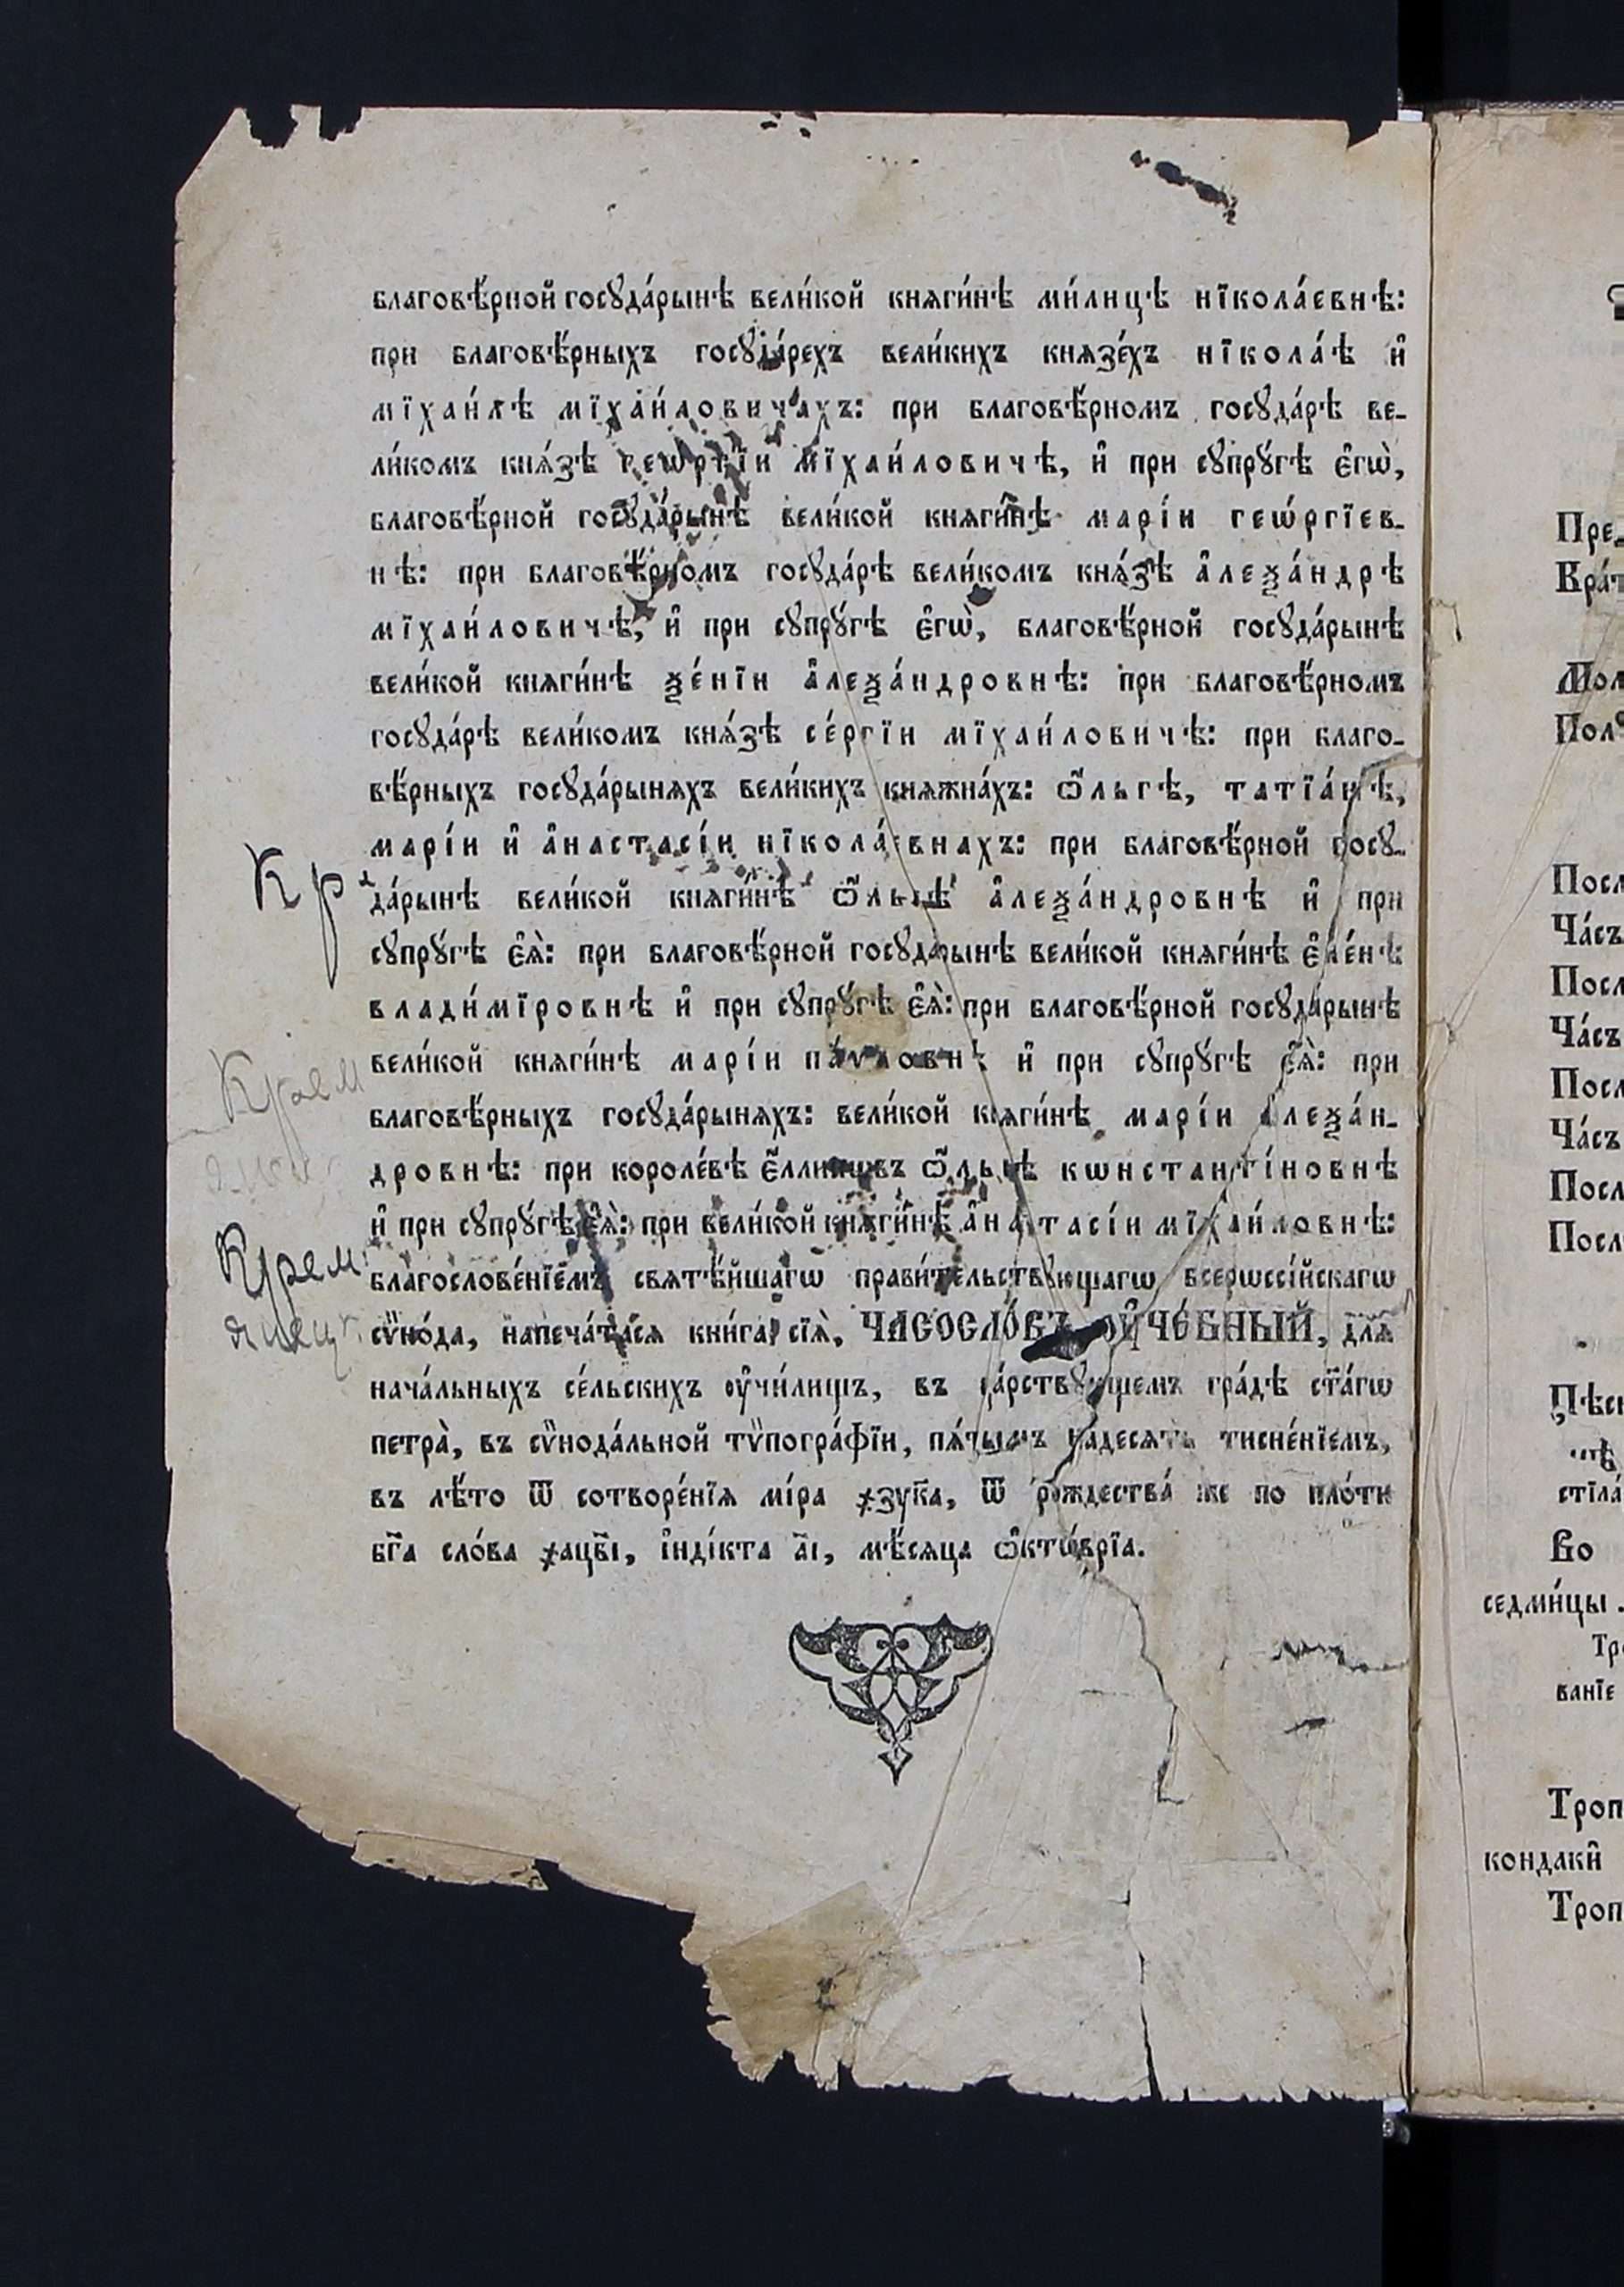 благовѣ́рной госꙋда́рынѣ вели́кой княги́нѣ ми́лицѣ нїкола́евнѣ:
при благовѣ́рныхъ госꙋда́рехъ вели́кихъ князе́хъ нїкола́ѣ и҆
мїхаи́лѣ мїхаи́ловичахъ: при благовѣ́рномъ госꙋда́рѣ ве-
ли́комъ кня́зѣ геѡ́ргїи мїхаи́ловичѣ, и҆ при сꙋпрꙋ́гѣ є҆гѡ̀,
благовѣ́рной госꙋда́рынѣ вели́кой княги́нѣ марі́и геѡ́ргїев-
нѣ: при благовѣ́рномъ госꙋда́рѣ вели́комъ кня́зѣ а҆леѯа́ндрѣ
мїхаи́ловичѣ, и҆ при сꙋпрꙋ́гѣ є҆гѡ̀, благовѣ́рной госꙋда́рынѣ
вели́кой княги́нѣ ѯе́нїи а҆леѯа́ндровнѣ: при благовѣ́рномъ
госꙋда́рѣ вели́комъ кня́зѣ се́ргїи мїхаи́ловичѣ: при благо-
вѣ́рныхъ госꙋда́рыняхъ вели́кихъ княжна́хъ: ѻ҆́льгѣ, татїа́нѣ,
марі́и и҆ а҆настасі́и нїкола́евнахъ: при благовѣ́рной госꙋ-
Кр да́рынѣ вели́кой княги́нѣ ѻ҆́льгѣ а҆леѯа́ндровнѣ и҆ при
сꙋпрꙋ́гѣ є҆ѧ̀: при благовѣ́рной госꙋда́рынѣ вели́кой княги́нѣ є҆ле́нѣ
влади́мїровнѣ и҆ при сꙋпрꙋ́гѣ є҆ѧ̀: при благовѣ́рной госꙋда́рынѣ
Крем вели́кой княги́нѣ марі́и па́ѵловнѣ и҆ при сꙋпрꙋ́гѣ є҆ѧ̀: при
благовѣ́рныхъ госꙋда́рыняхъ: вели́кой княги́нѣ марі́и а҆леѯа́н-
дровнѣ: при короле́вѣ є҆́ллинѡвъ ѻ҆́льгѣ кѡнстанті́новнѣ
и҆ при сꙋпрꙋ́гѣ є҆ѧ̀: при вели́кой княги́нѣ а҆настасі́и мїхаи́ловнѣ:
Крем благослове́нїемъ святѣ́йшагѡ прави́тельствꙋющагѡ всерѡссі́йскагѡ
янец сѷно́да, напеча́тася кни́га сїѧ̀, ЧАСОСЛО́ВЪ ᲂУ҆ЧЕ́БНЫЙ, для̀
нача́льныхъ се́льскихъ ᲂу҆чи́лищъ, въ ца́рствꙋющемъ гра́дѣ ст҃а́гѡ
петра̀, въ сѷнода́льной тѷпогра́фїи, пя́тымъ надесять тисне́нїемъ,
въ лѣ́то ѿ сотворе́нїя мі́ра ҂зук҃а, ѿ рождества́ же по пло́ти
бг҃а сло́ва ҂ацв҃і, і҆ндікта а҃і, мѣ́сяца ѻ҆ктѡ́врїа.
Пре-
Кра́т
Мол
Полꙋ
Посл
Ча́съ
Посл
Ча́съ
Посл
Ча́съ
Посл
Посл
Пѣсн
стїла
Во
седми́цы
Тро
ванїе
Троп
кондаки̑
Троп